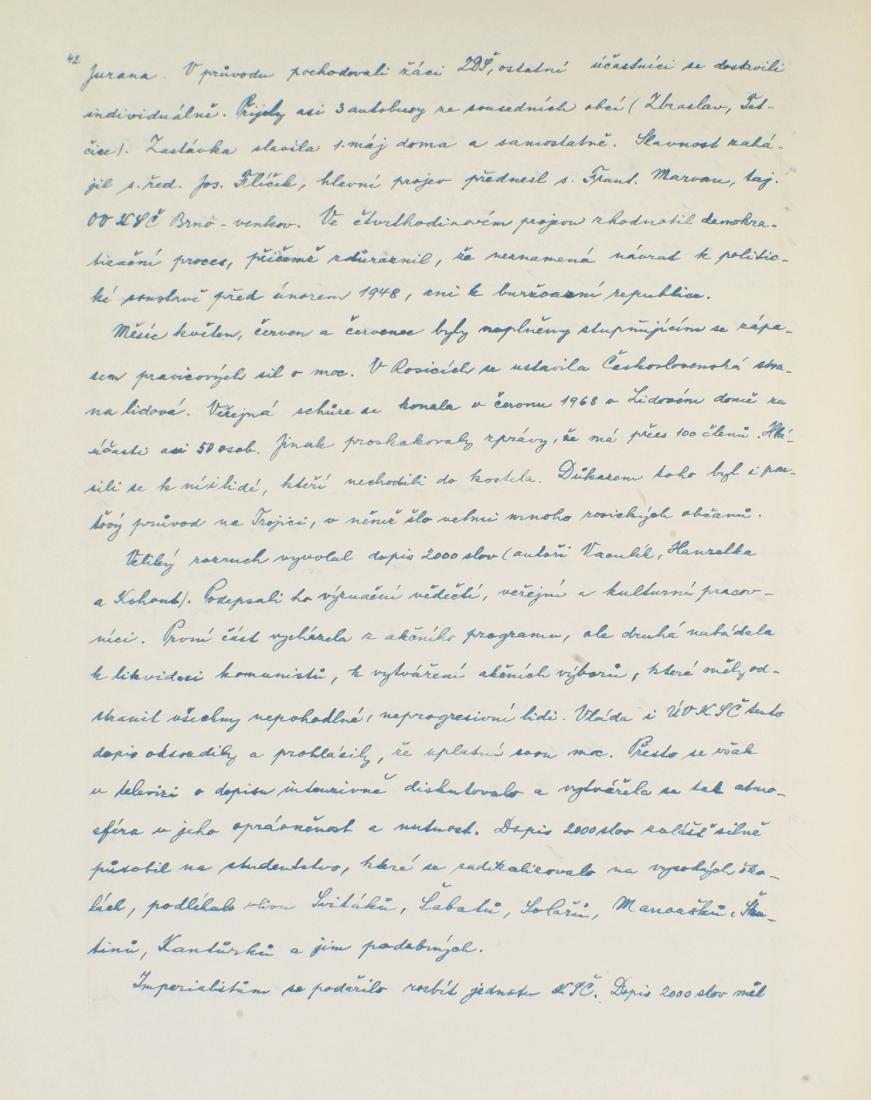 42
Jurana. V průvodu pochodovali žáci ZDŠ, ostatní účastníci se dostavili
individuálně. Přijely asi 3 autobusy ze sousedních obcí (Zbraslav, Tet-
čice). Zastávka slavila 1. máj doma a samostatně. Slavnost zahá-
jil s. řed. Jos. Flíček, hlavní projev přednesl s. Frant. Marvan, taj.
OV KSČ Brno-venkov. Ve čtvrthodinovém projevu zhodnotil demokra-
tizační proces, přičemž zdůraznil, že neznamená návrat k politic-
ké soustavě před únorem 1948, ani k buržoazní republice.
Měsíc květen, červen a červenec byly naplněny stupňujícím se zápa-
sem pravicových sil o moc. V Rosicích se ustavila Československá stra-
na lidová. Veřejná schůze se konala v červnu 1968 v Lidovém domě za
účasti asi 50 osob. Jinak proskakovaly zprávy, že má přes 100 členů. Hlá-
sili se k ní i lidé, kteří nechodili do kostela. Důkazem toho byl i pou-
ťový průvod na Trojici, v němž šlo velmi mnoho rosických občanů.
Veliký rozruch vyvolal dopis 2000 slov (autoři Vaculík, Hanzelka
a Kohout). Podepsali ho význační vědečtí, veřejní a kulturní pracov-
níci. První část vycházela z akčního programu, ale druhá nabádala
k likvidaci komunistů, k vytváření akčních výborů, které měly od-
stranit všechny nepohodlné, neprogresivní lidi. Vláda i ÚV KSČ tento
dopis odsoudily a prohlásily, že uplatní svou moc. Přesto se však
v televizi o dopisu intenzivně diskutovalo a vytvářela se tak atmo-
sféra v jeho oprávněnost a nutnost. Dopis 2000 slov zvlášť silně
působil na studentstvo, které se radikalizovalo na vysokých ško-
lách, podléhalo vlivu Sviťáků, Šabatů, Solařů, Manoušků, Šku-
tinů, Kantůrků a jim podobných.
Imperialistům se podařilo rozbít jednotu KSČ. Dopis 2000 slov měl